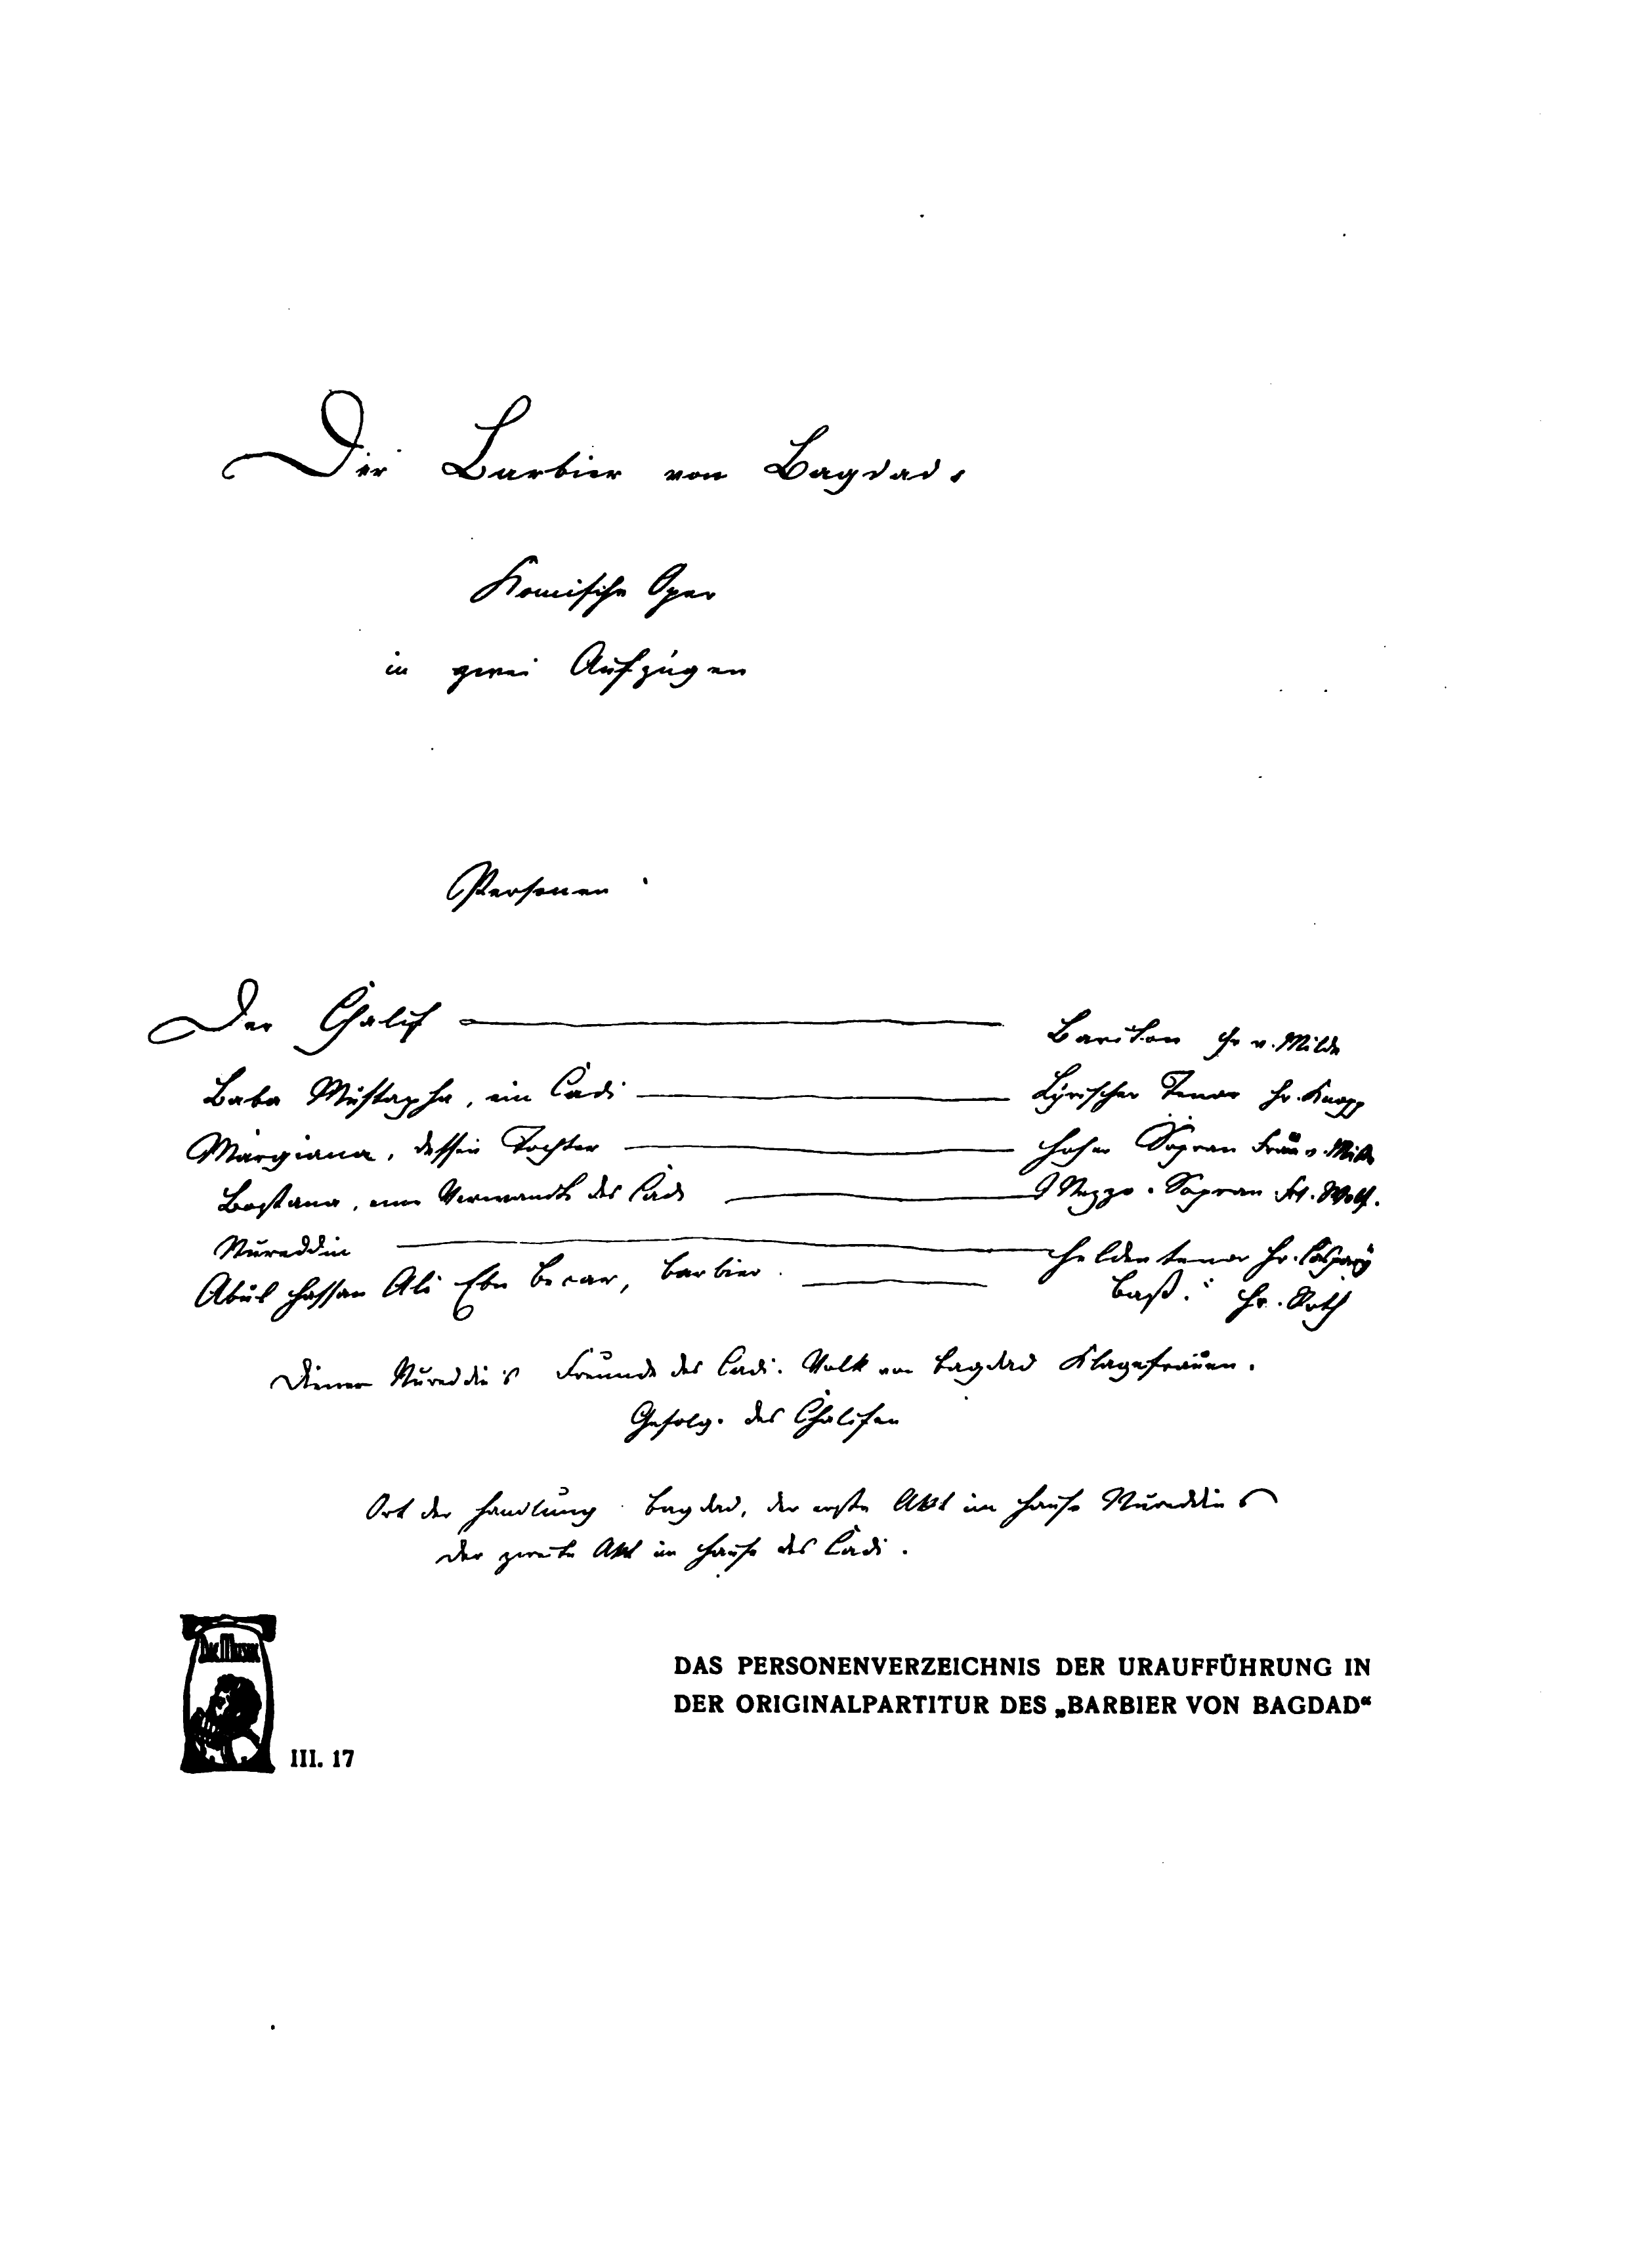 Der Barbier von Bagdad.
Komische Oper
in zwei Aufzügen
Personen
Der Chalif Bariton Hr v. Milde
Baba Mustapha, ein Cadi Lyrischer Tenor Hr. Knopp
Margiana, dessen Tochter hoher Sopran Frau v. Milde
Bostana, eine Verwandte des Cadi Mezzo-Sopran Frl. Wolf.
Nureddin Heldentenor Hr. Caspary
Abul Hassan Ali Ebn Becar, Barbier. Baß. Hr. Roth
Diener Nureddin's Freunde des Cadi. Volk von Bagdad Klagefrauen.
Gefolge des Chalifen
Ort der Handlung Bagdad, der erste Akt im Hause Nureddins
der zweite Akt im Hause des Cadi.
DIE MUSIK
DAS PERSONENVERZEICHNIS DER URAUFFÜHRUNG IN
DER ORIGINALPARTITUR DES „BARBIER VON BAGDAD“
III. 17